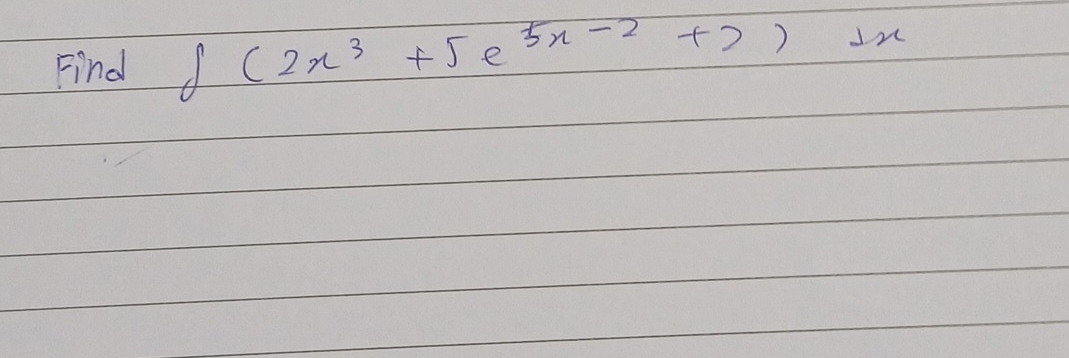 Find ∫ (2x³ + 5e^{5x-2} + 7) dx